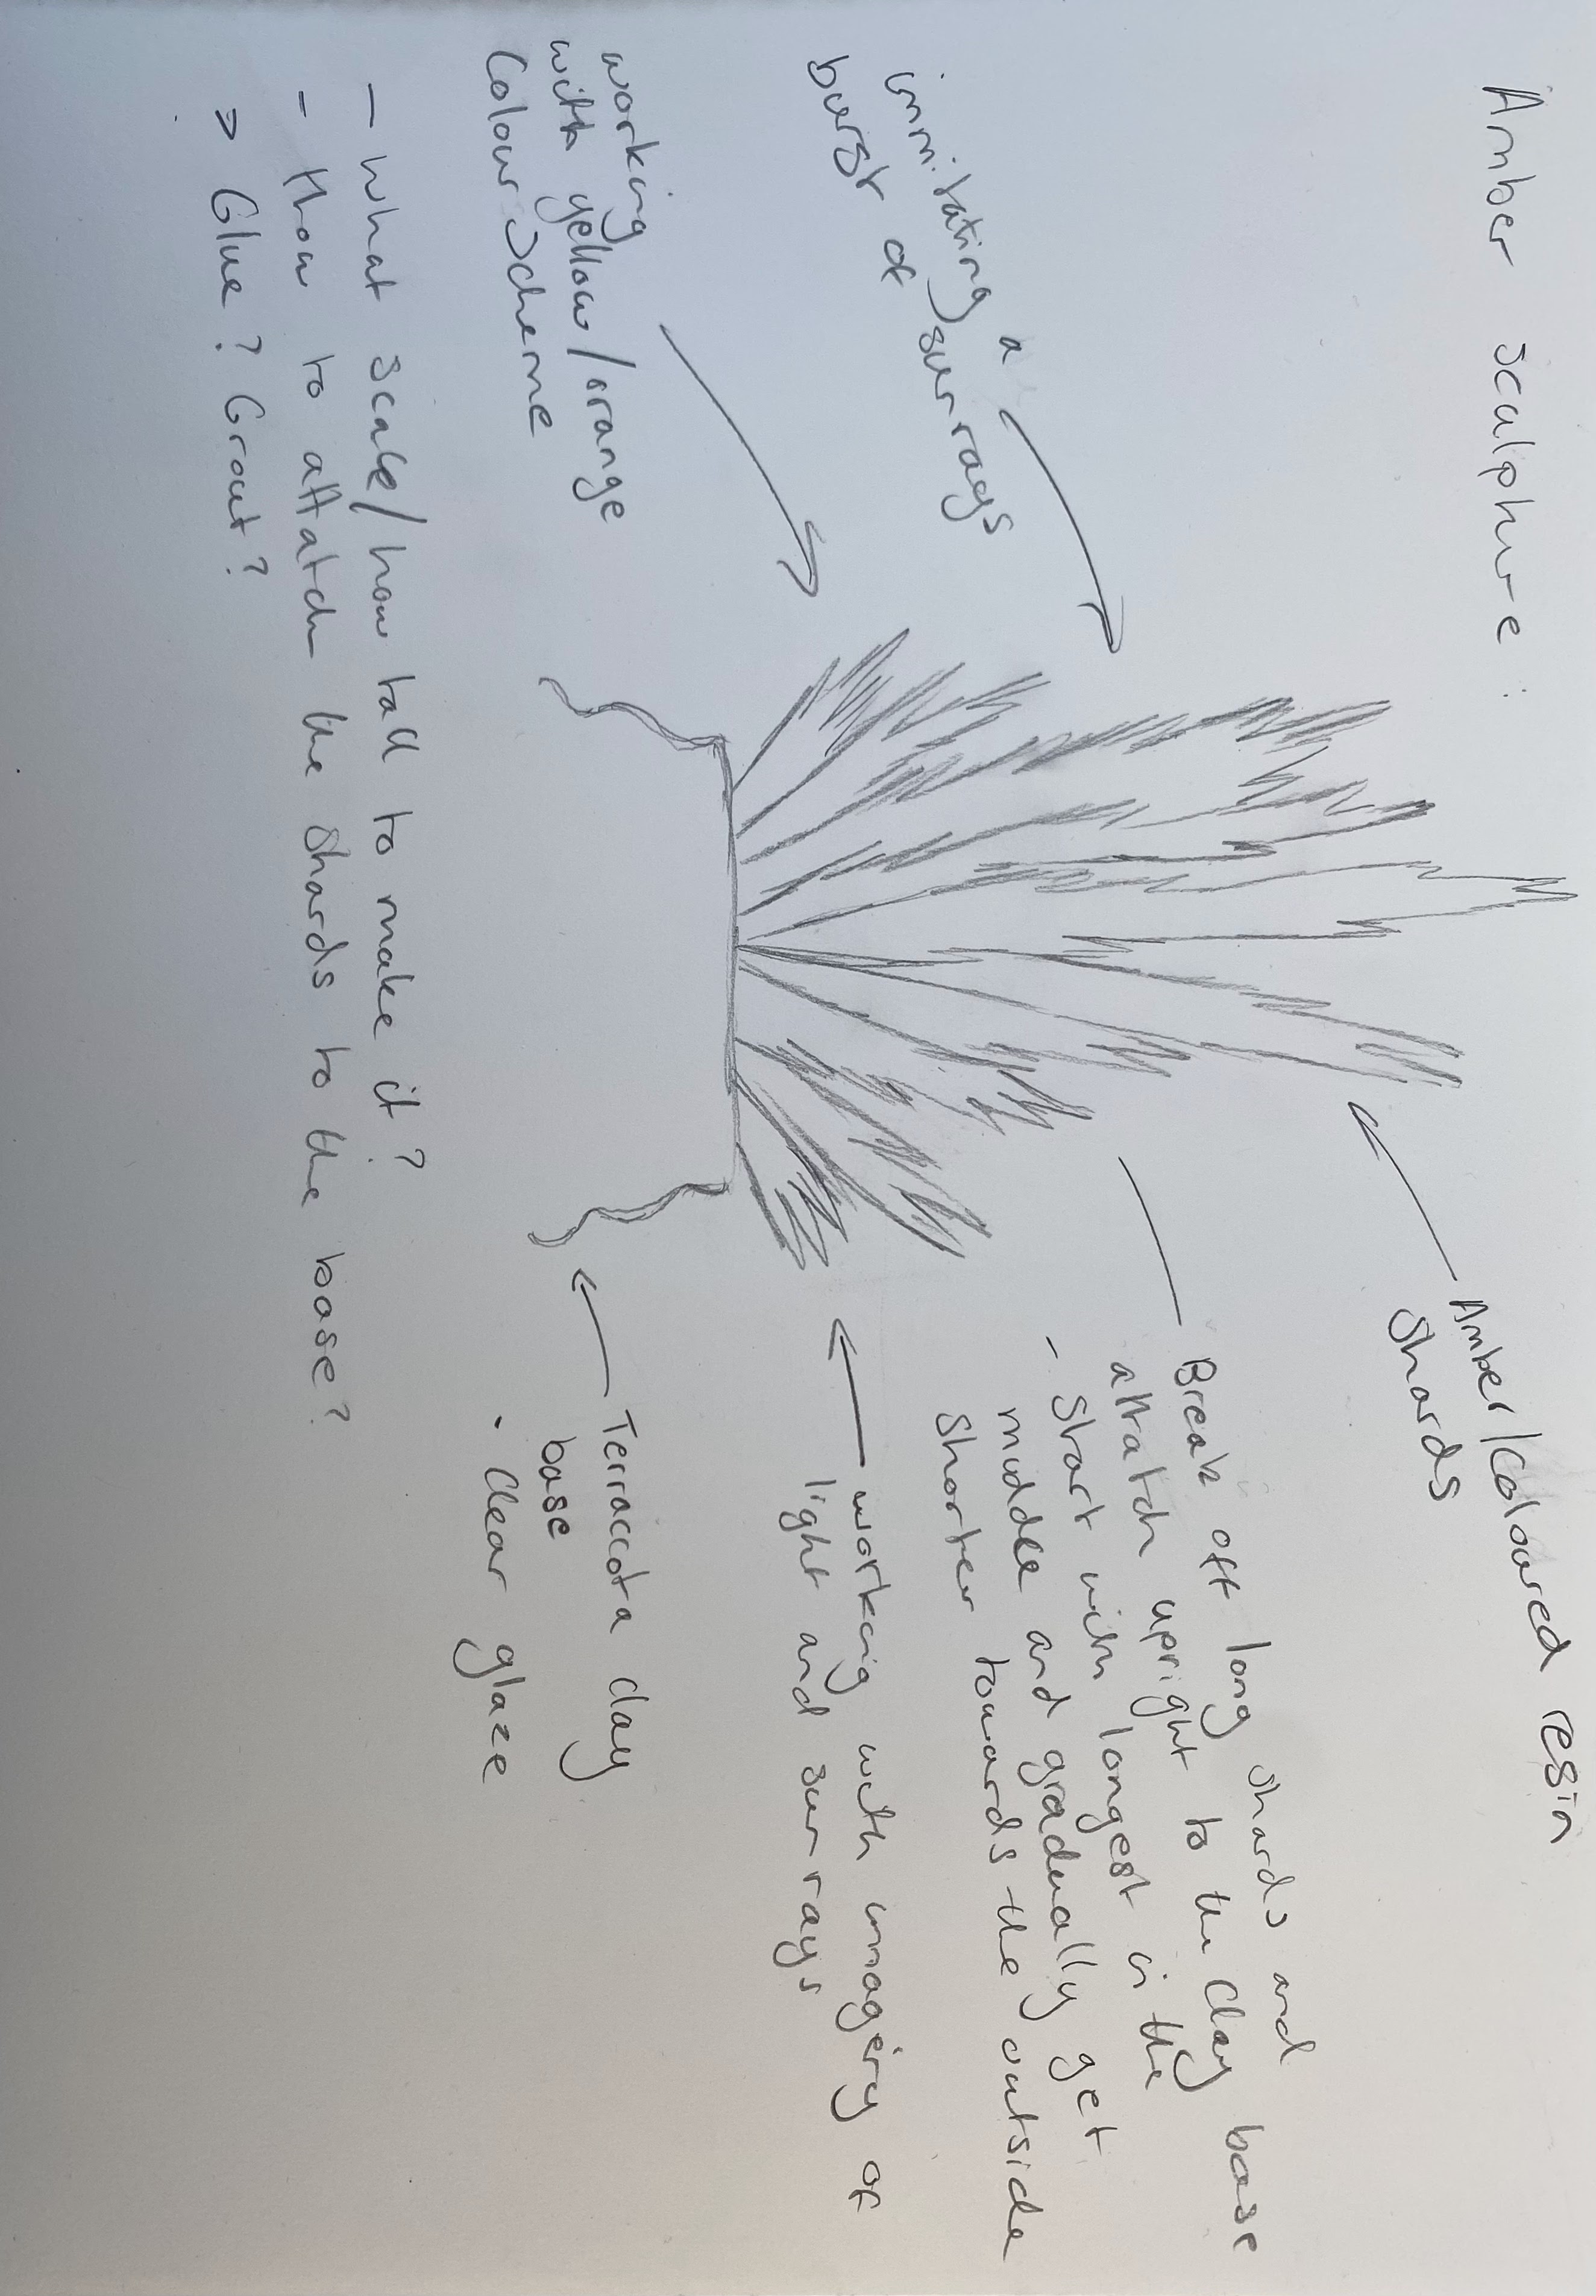 Amber sculpture :
Amber/coloured resin
shards
immitating a
burst of sun rays
Break off long shards and
attatch upright to the clay base
- start with longest in the
middle and gradually get
shorter towards the outside
working
with yellow/orange
colour scheme
working with imagery of
light and sun rays
Terraccota clay
base
• clear glaze
- what scale/how tall to make it?
- How to attatch the shards to the base?
> Glue? Grout?